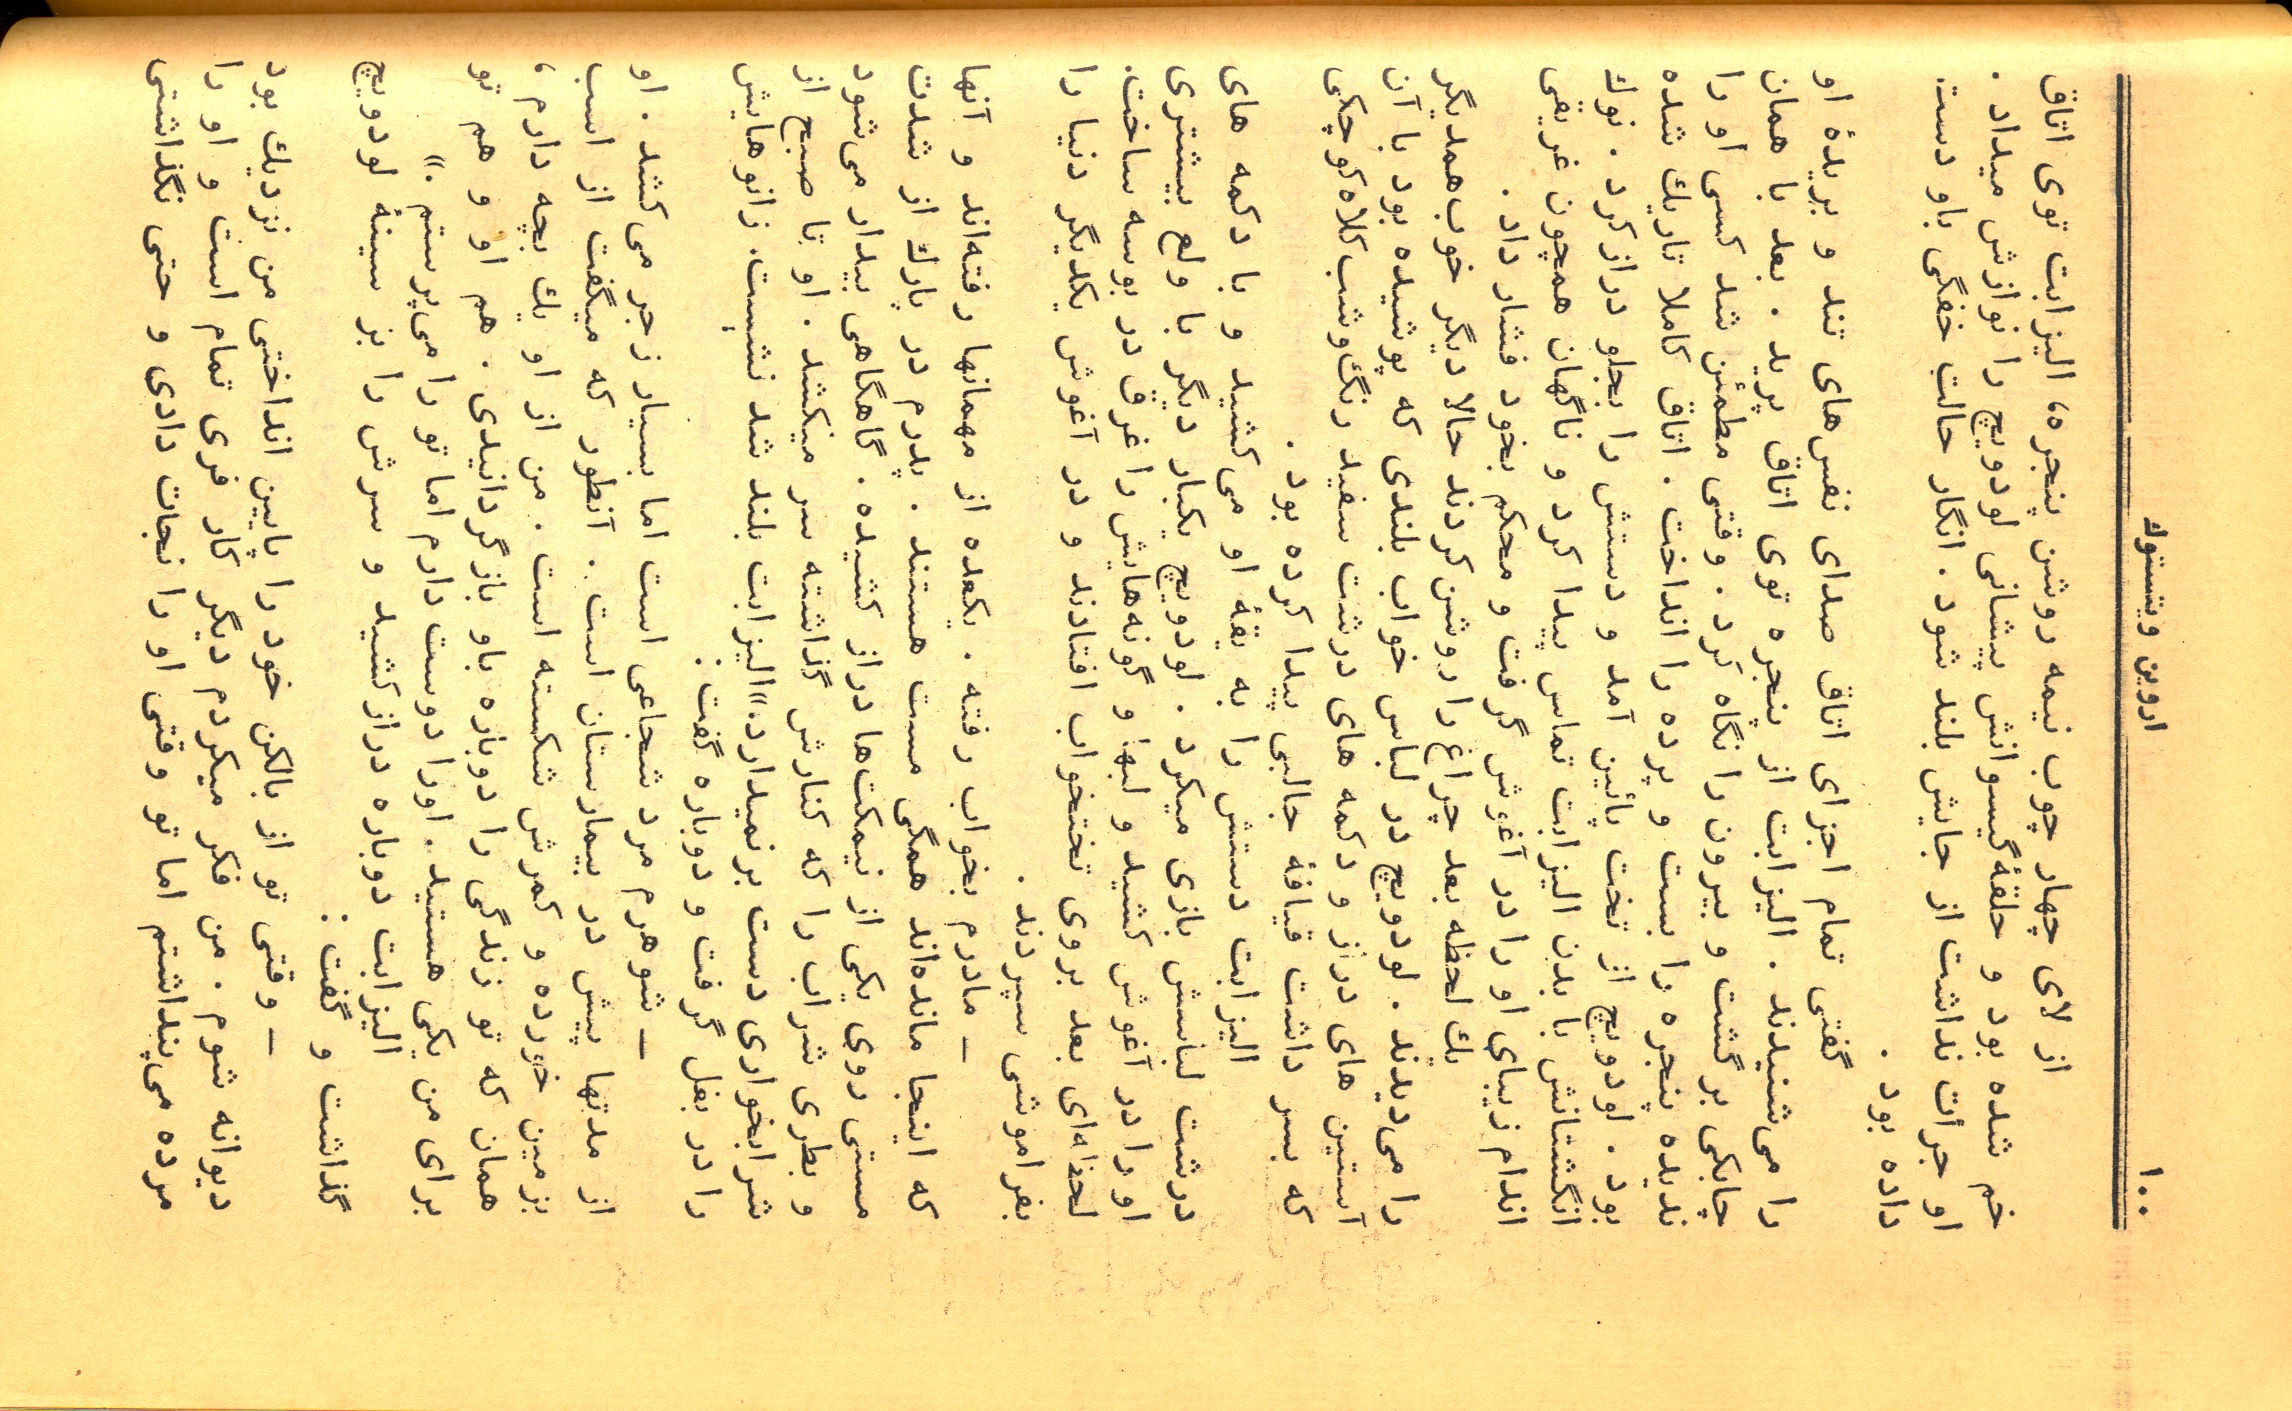 ۱۰۰ اروین ویتستوك
از لای چهار چوب نیمه روشن پنجره، الیزابت توی اتاق
خم شده بود و حلقهٔ گیسوانش پیشانی لودویج را نوازش میداد .
او جرأت نداشت از جایش بلند شود . انگار حالت خفگی باو دست
داده بود .
گفتی تمام اجزای اتاق صدای نفس‌های تند و بریدهٔ او
را می‌شنیدند . الیزابت از پنجره توی اتاق پرید . بعد با همان
چابکی برگشت و بیرون را نگاه کرد . وقتی مطمئن شد کسی او را
ندیده پنجره را بست و پرده را انداخت . اتاق کاملا تاریك شده
بود . لودویج از تخت پائین آمد و دستش را بجلو دراز کرد . نوك
انگشتانش با بدن الیزابت تماس پیدا کرد و ناگهان همچون غریقی
اندام زیبای او را در آغوش گرفت و محکم بخود فشار داد .
یك لحظه بعد چراغ را روشن کردند حالا دیگر خوب همدیگر
را می‌دیدند . لودویج در لباس خواب بلندی که پوشیده بود با آن
آستین های دراز و دکمه های درشت سفید رنگ و شب کلاه کوچکی
که بسر داشت قیافهٔ جالبی پیدا کرده بود .
الیزابت دستش را به یقهٔ او می‌کشید و با دکمه های
درشت لباسش بازی میکرد . لودویج یکبار دیگر با ولع بیشتری
او را در آغوش کشید و لبها و گونه‌هایش را غرق در بوسه ساخت.
لحظه‌ای بعد بروی تختخواب افتادند و در آغوش یکدیگر دنیا را
بفراموشی سپردند .
– مادرم بخواب رفته . یکعده از مهمانها رفته‌اند و آنها
که اینجا مانده‌اند همگی مست هستند . پدرم در پارك از شدت
مستی روی یکی از نیمکت‌ها دراز کشیده . گاهگاهی بیدار می‌شود
و بطری شراب را که کنارش گذاشته سر میکشد . او تا صبح از
شرابخواری دست برنمیدارد.» الیزابت بلند شد نشست. زانوهایش
را در بغل گرفت و دوباره گفت :
– شوهرم مرد شجاعی است اما بسیار زجر می‌کشد . او
از مدتها پیش در بیمارستان است . آنطور که میگفت از اسب
بزمین خورده و کمرش شکسته است . من از او یك بچه دارم ،
همان که تو زندگی را دوباره باو بازگردانیدی . هم او و هم تو
برای من یکی هستید . او را دوست دارم اما تو را می‌پرستم .»
الیزابت دوباره دراز کشید و سرش را بر سینهٔ لودویج
گذاشت و گفت :
– وقتی تو از بالکن خود را پایین انداختی من نزدیك بود
دیوانه شوم . من فکر میکردم دیگر کار فری تمام است و او را
مرده می‌پنداشتم اما تو وقتی او را نجات دادی و حتی نگذاشتی